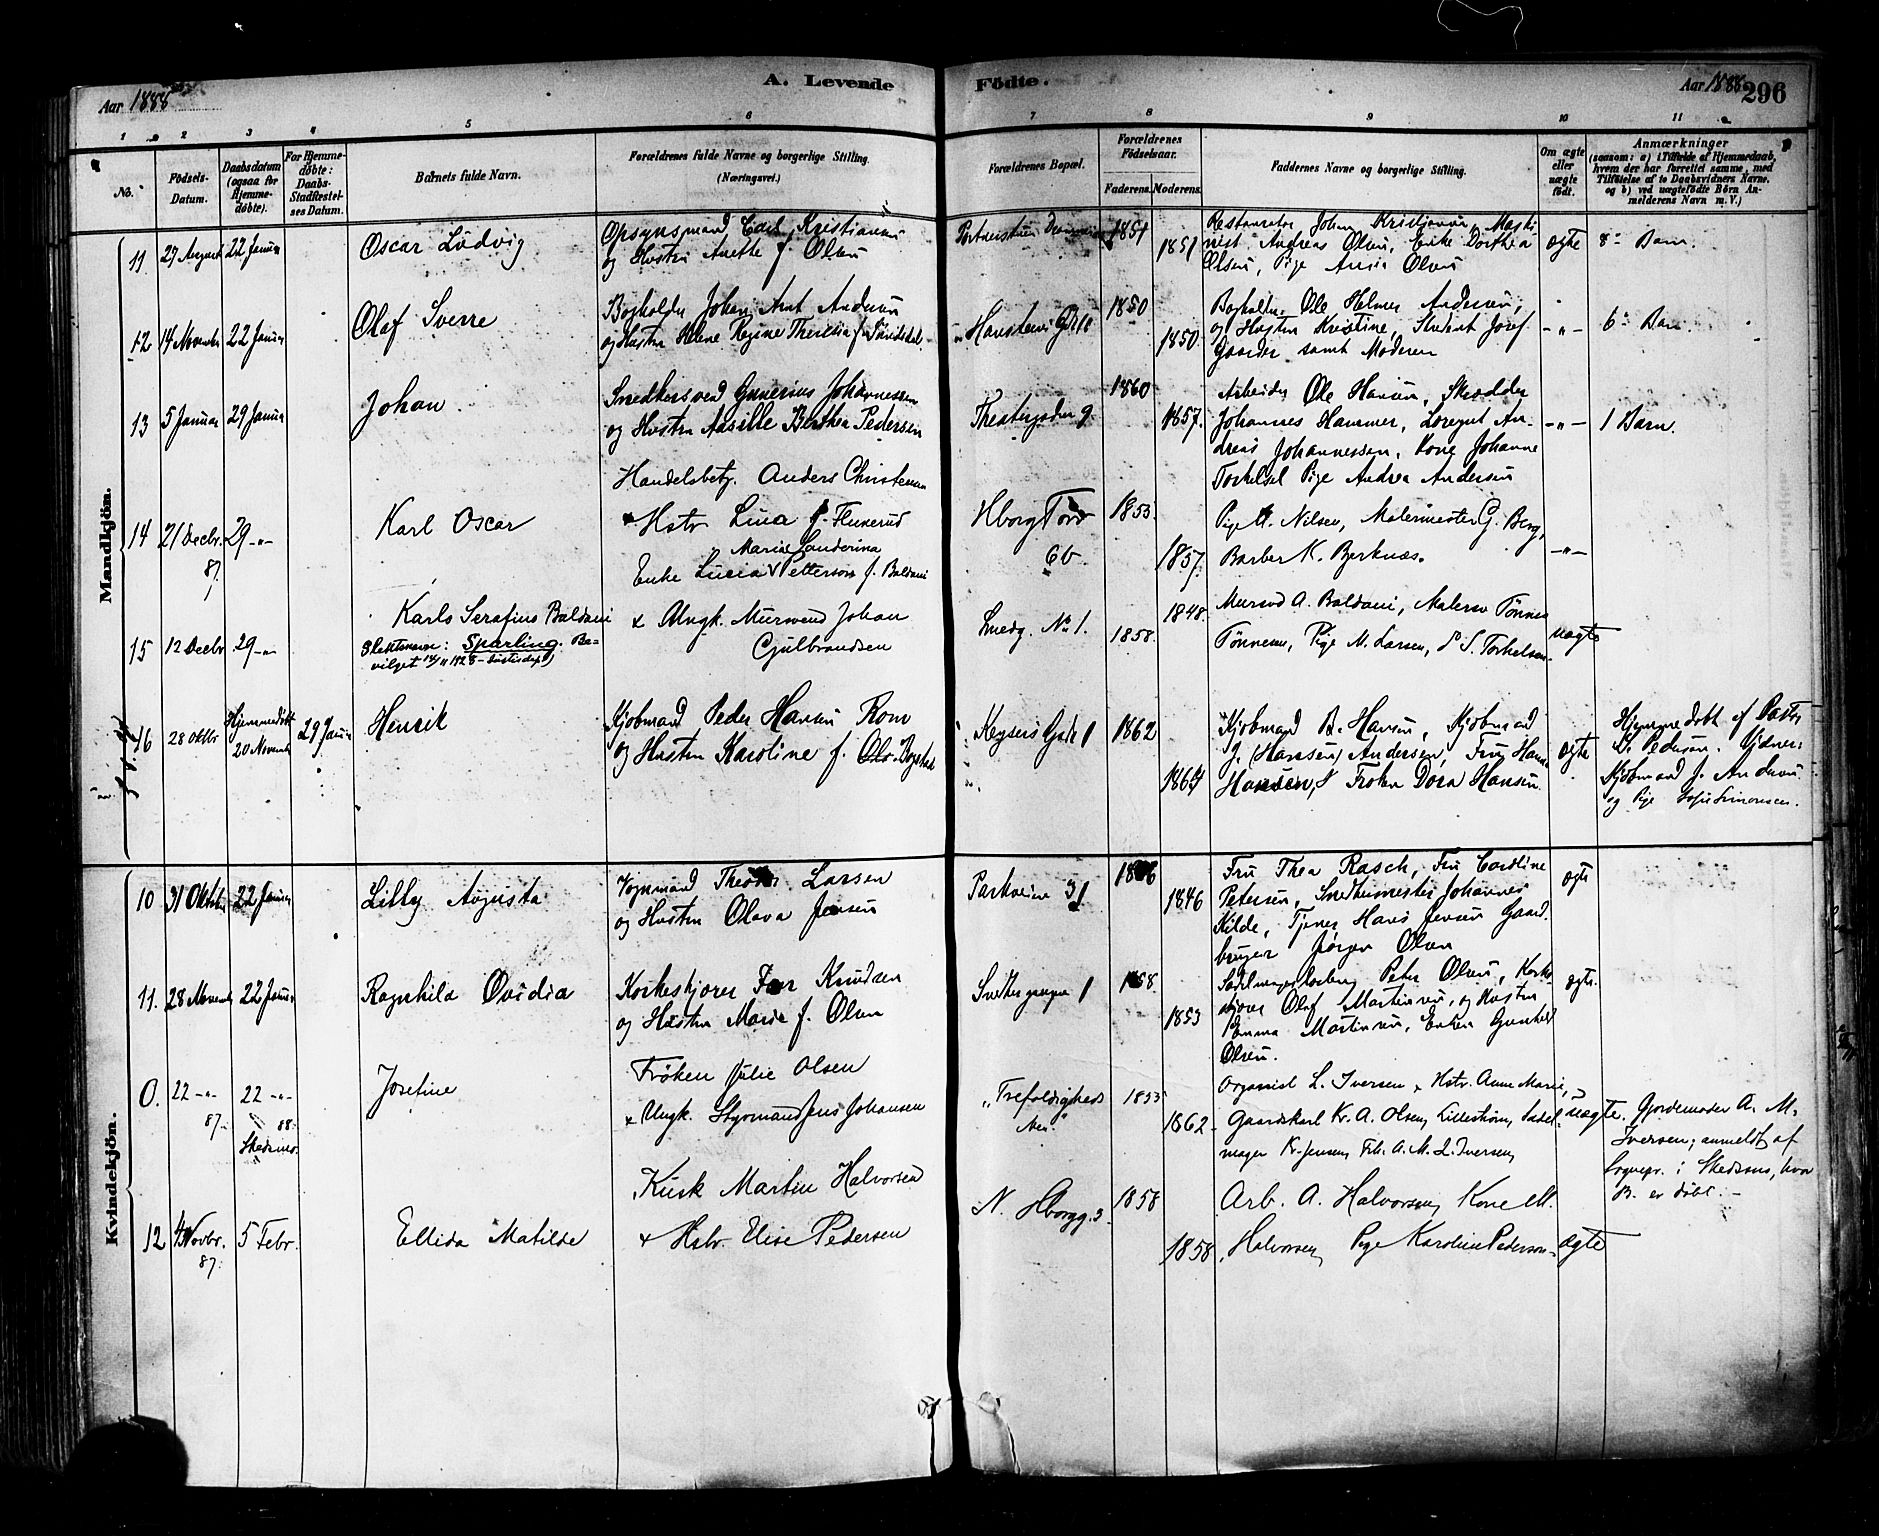 A. Levende Födte.
Aar 1888
Aar 1888 296
1 2 3 4 5 6 7 8 9 10 11
No.
Födsels-Datum.
Daabsdatum (ogsaa for Hjemmedöbte).
For Hjemmedöbte: Daabs-Stadfæstelses Datum.
Barnets fulde Navn.
Forældrenes fulde Navne og borgerlige Stilling.
(Næringsvei.)
Forældrenes Bopæl.
Forældrenes Födselsaar.
Faderens. Moderens.
Faddernes Navne og borgerlige Stilling.
Om ægte eller uægte födt.
Anmærkninger
(saasom: a) i Tilfælde af Hjemmedaab, hvem der har forrettet samme, med Tilföielse af to Daabsvidners Navne, og b) ved uægtefödte Börn Anmelderens Navn m. V.)
Mandkjön.
11. 27 August 22 Januar
Oscar Ludvig
Opsynsmand Carl Kristiansen
og Hustru Anette f. Olsen
1851
1851
Restauratör Johan Kristiansen, Maski-
nist Andreas Olsen, Enke Dorthea
Olsen, Pige Anna Olsen
ægte
8de Barn.
12. 14 Novembr 22 Januar
Olaf Sverre
Bogholder Johan Arnt Andersen
og Hustru Helene Regine Theresia f.
Hansteens Gd.
1850
1850.
Bogholder Ole Helmer Andersen,
og Hustru Kristine, Student Josef
Gaarder samt Moderen
- " -
6te Barn.
13 5 Januar 29 Januar
Johan.
Smedkersvend Gunerius Johannessen
og Hustru Berthea Pedersen
Theatergaden 9.
1860
1857.
Arbeider Ole Hansen, Skrædder
Johannes Hammer, An-
dreas Johannessen, Kone Johanne
Torkelsel Pige Andrea Andersen
- " -
1 Barn.
14 21 Decbr. 29 - " -
87.
Karl Oscar
Handelsbetj. Anders Christensen
& Hstr Lina f.
Hborg Torv
6b.
1853.
1857.
Pige A. Nilsen, Malermester G. Berg,
Barber K. Bjerknæs.
- " -
15 12 Decbr 29 - " -
Karls Serafius Baldani
Slektsnavn: Sparling. Be-
vilget 1928 - Justisdept)
Maria Sanderina
Enke Lucia Petterson f. Baldani
& Ungk. Mursvend Johan
Gulbrandsen
Smedg. No 1.
1848.
1858.
Mursvd A. Baldani, Malersv Tönnes
Tönnesen, Pige M. Larsen, S. Torkelsen
uægte
16 28 Oktbr Hjemmedöbt
20 Novembr
29 Januar
Henrik
Kjöbmand Peder Hansen Rom
og Hustru Karoline f. Bogstad
Keysers Gade 1
1862
1864
Kjöbmand B. Hansen, Kjöbmand
J. (Hansen) Andersen, Fru Hanna
Hansen, Fröken Dora Hansen.
ægte
Hjemmedöbt af Pastor
B. Pedersen. Vidner:
Kjöbmand J. Andersen
og Pige Sofie Simonsen.
Kvindekjön.
10 31 Oktober 22 Januar
Lilly Augusta
Vognmand Theodor Larsen
og Hustru Olava Jensen
Parkveien 31
1846
Fru Thea Rasch, Fru Caroline
Petersen, Snedkermester Johannes
Kilde, Tjener Hans Jensen Gaard-
bruger Jörgen Olsen
ægte
11. 28 Novemb 22 Januar
Ragnhild Ovidia
Korkeskjærer Knudsen
og Hustru Marie f. Olsen
1858.
1853
Sadelmager Peter Olsen, Kork-
skjærer Olaf Martinsen, og Hustru
Emma Martinsen, Enken Gunhild
Olsen.
ægte.
O. 22 - " -
87.
22 - " -
88.
Skedsmo.
Josefine
Fröken Julie Olsen
& Ungk. Styrmand Jens Johansen
"Trefoldigheds
1855
1862
Organist L. Iversen & Hstr. Anne Marie,
Gaardskarl Kr. A. Olsen, Lilleström, Sadel-
mager Kr. Jensen, Frk. A. M. L. Iversen,
uægte.
Gjordemoder A. M.
Iversen; anmeldt af
Sognepr. i Skedsmo, hvor
B. er döbt. -
12 4 Novbr. 5 Febr.
87.
Ellida Matilde
Kusk Martin Halvorsen
& Hstr. Elise Pedersen
N. Hborgg. 3.
1858
1858
Arb. A. Halvorsen, Kone M.
Halvorsen, Pige Karoline Pedersen
ægte